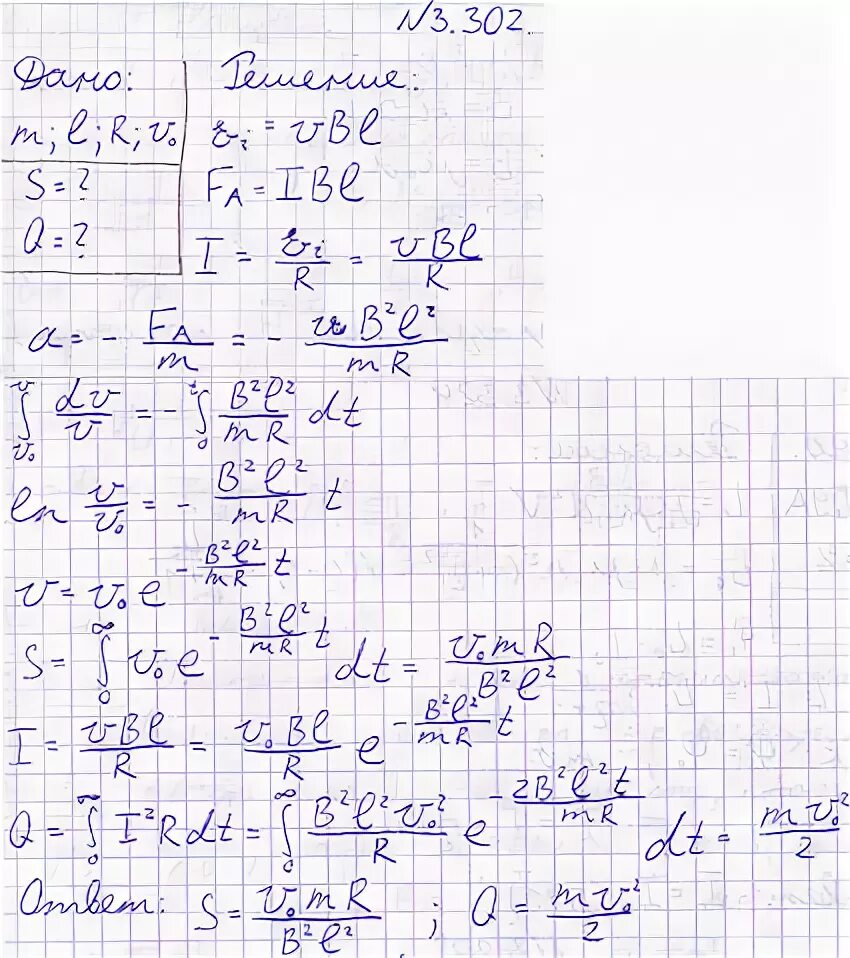 N3.302.
Дано: Решение:
m; l; R; v₀
S = ?
Q = ?
ℰᵢ = vBl
F_A = IBl
I = ℰᵢ/R = vBl/R
a = - F_A/m = - vB²l²/mR
∫_{v₀}^{v} dv/v = - ∫_{0}^{t} B²l²/mR dt
ln v/v₀ = - B²l²/mR t
v = v₀ e^{- B²l²/mR t}
S = ∫_{0}^{∞} v₀ e^{- B²l²/mR t} dt = v₀mR/B²l²
I = vBl/R = v₀Bl/R e^{- B²l²/mR t}
Q = ∫_{0}^{∞} I²Rdt = ∫_{0}^{∞} B²l²v₀²/R e^{- 2B²l²t/mR} dt = mv₀²/2
Ответ: S = v₀mR/B²l² ; Q = mv₀²/2